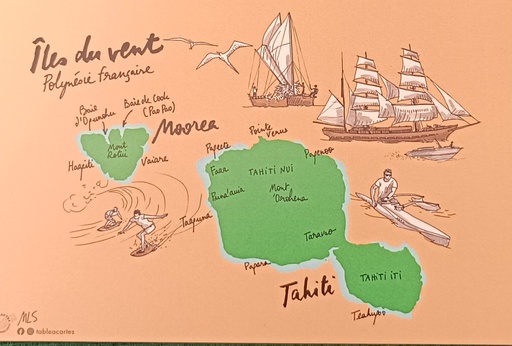 Îles du vent
Polynésie française
Baie
d'Opunohu
Baie de Cook
(Pao Pao)
Moorea
Mont
Rotui
Haapiti
Vaiare
Papeete
Pointe
Venus
Papenoo
Faaa
TAHITI NUI
Puna'auia
Mont
Orohena
Taapuna
Taravao
Papara
Tahiti
TAHITI ITI
Teahupoo
MLS
tableacartes